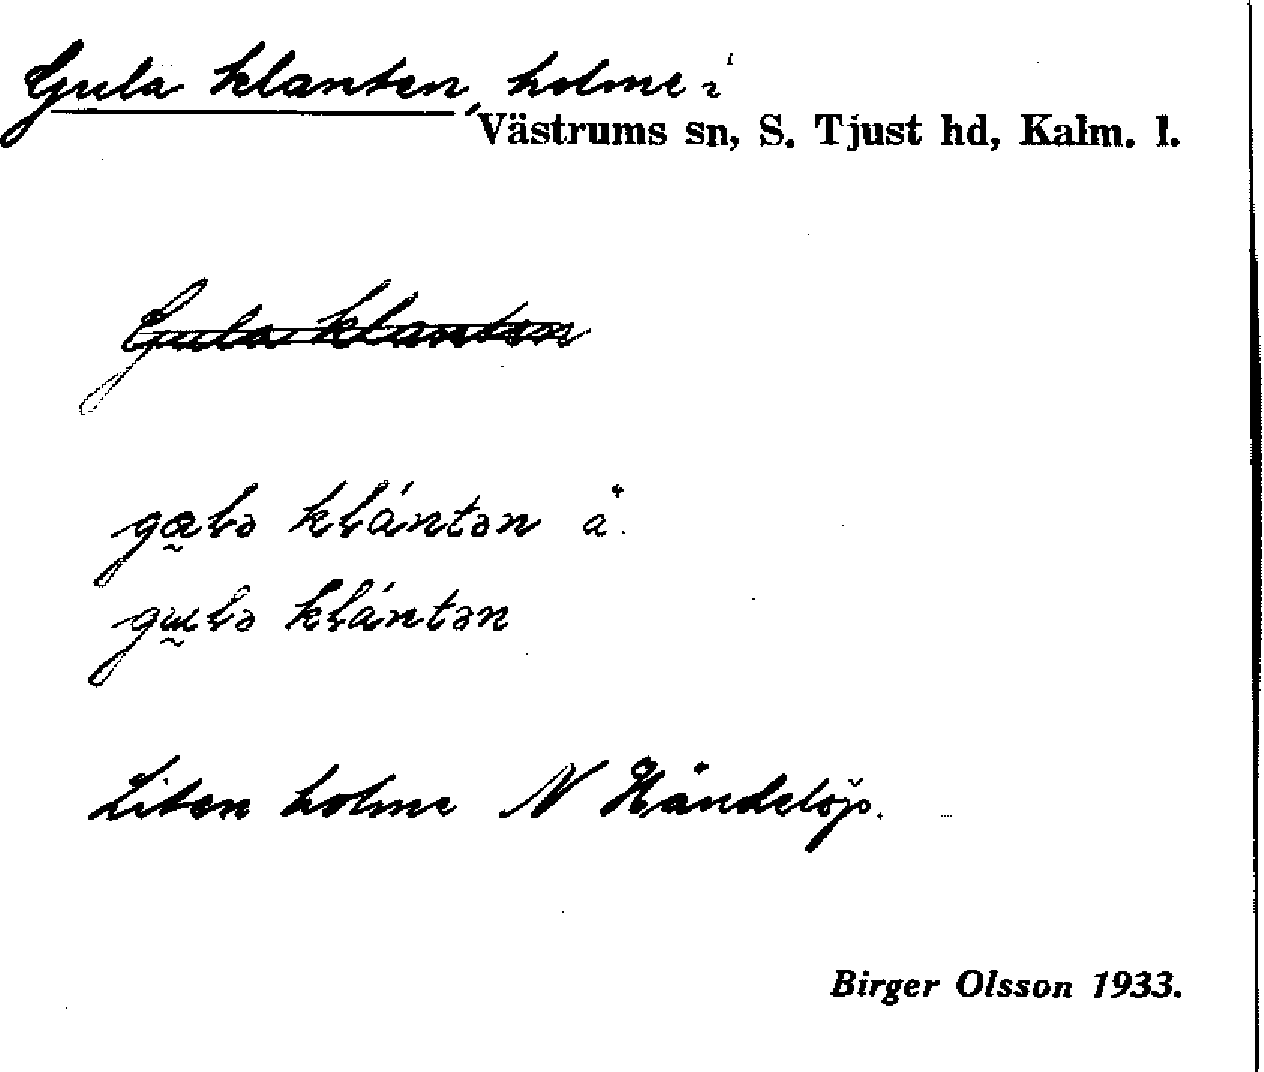 Gula klanten, holme i
Västrums sn, S. Tjust hd, Kalm. l.
Gula klanten
klántən
klántən
Liten holme N Händelöp.
Birger Olsson 1933.